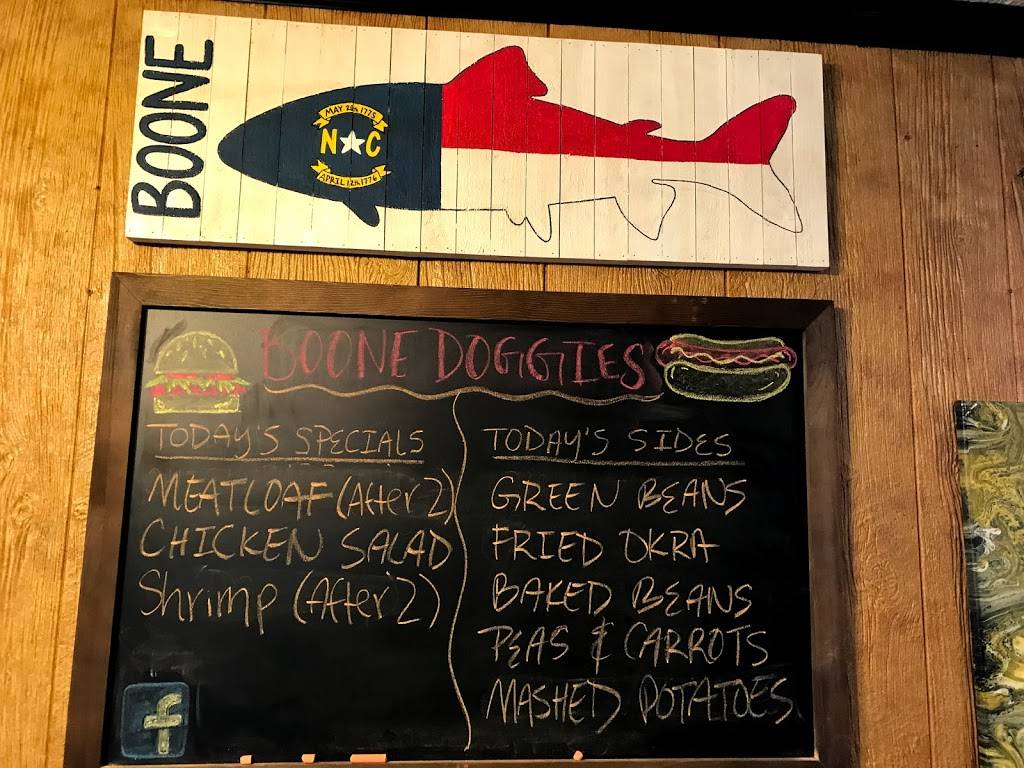 BOONE
MAY 20th 1775
N C
APRIL 12th 1776
BOONE DOGGIES
TODAY'S SPECIALS
MEATLOAF (After 2)
CHICKEN SALAD
Shrimp (After 2)
TODAY'S SIDES
GREEN BEANS
FRIED OKRA
BAKED BEANS
PEAS & CARROTS
MASHED POTATOES
f